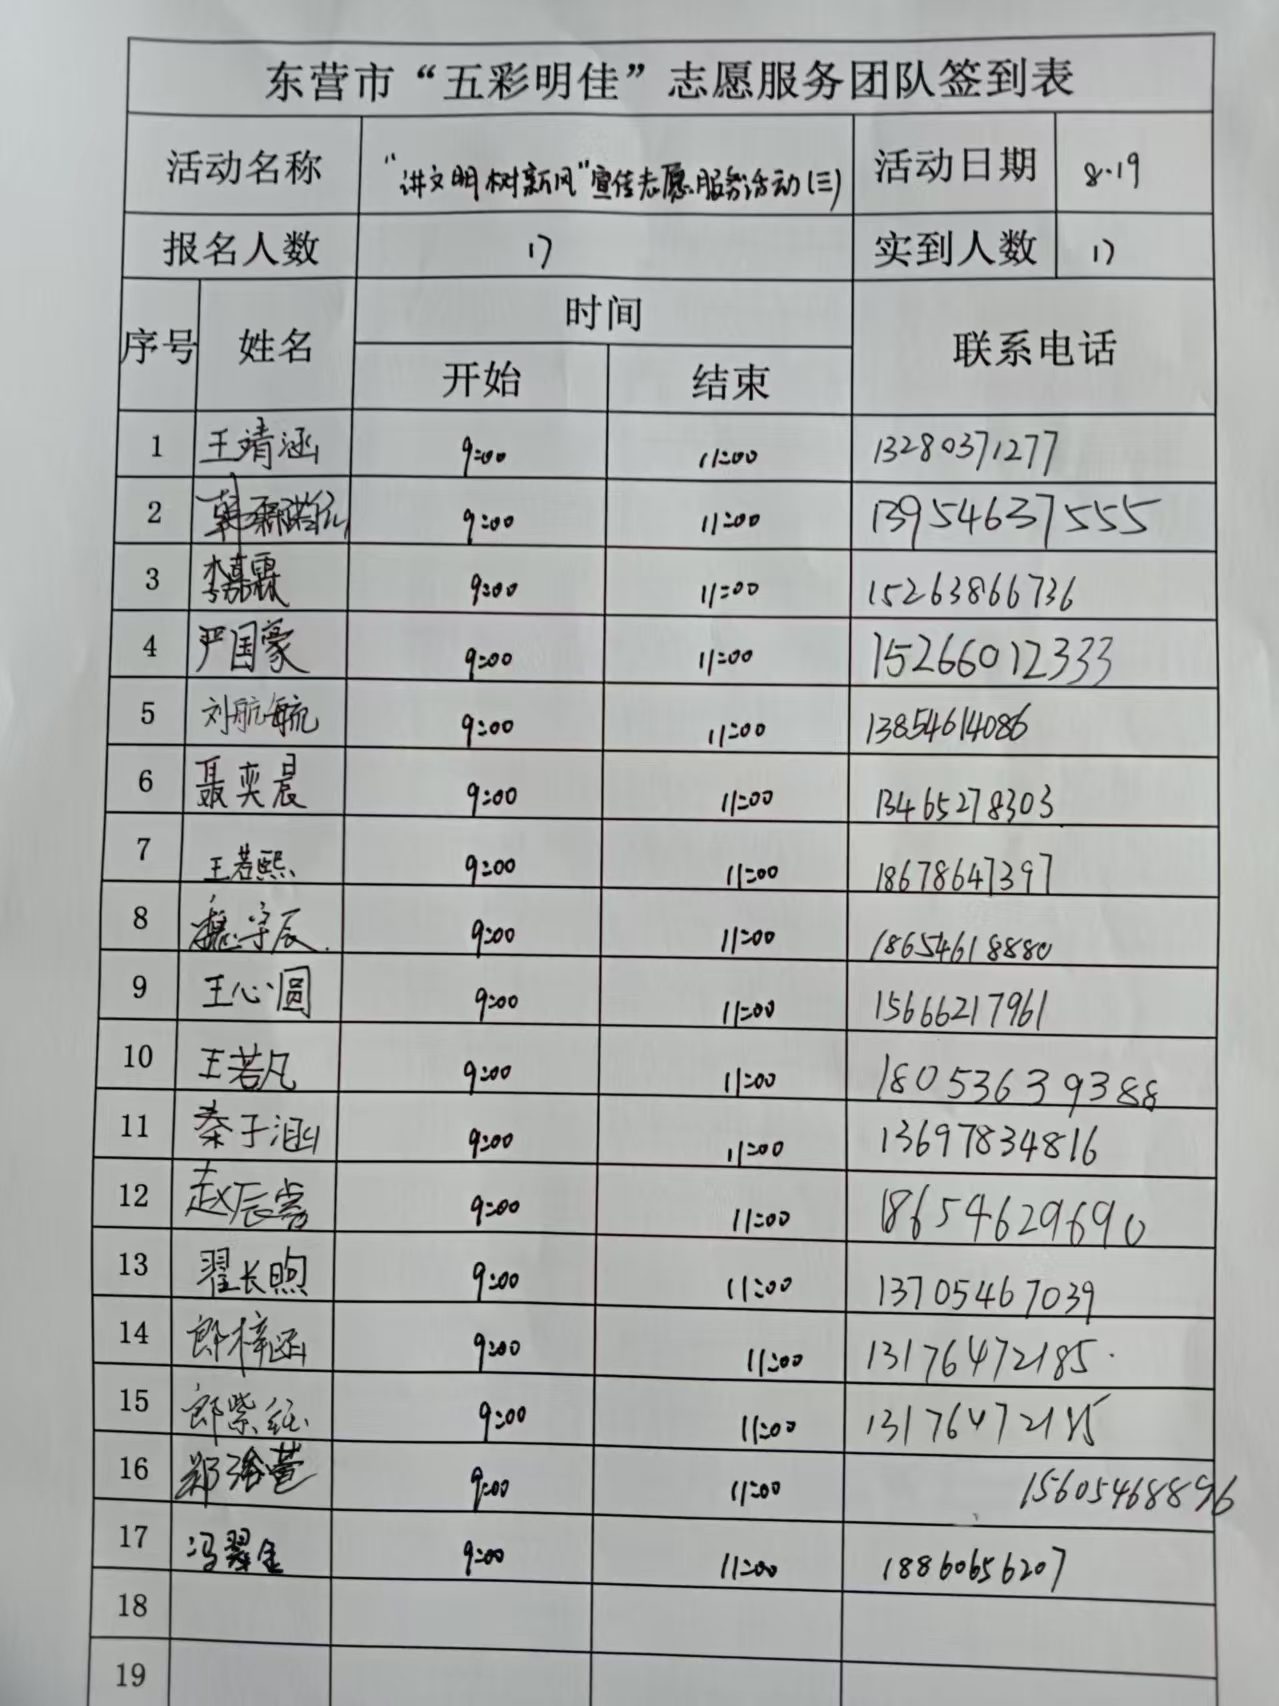 东营市“五彩明佳”志愿服务团队签到表
活动名称 “讲文明树新风”宣传志愿服务活动(三) 活动日期 8.19
报名人数 17 实到人数 17
序号 姓名 时间 联系电话
开始 结束
1 王靖涵 9:00 11:00 13280371277
2 9:00 11:00 13954637555
3 李嘉霖 9:00 11:00 15263866736
4 严国豪 9:00 11:00 15266012333
5 刘航毓 9:00 11:00 13854614086
6 聂奕晨 9:00 11:00 13465278303
7 王若熙 9:00 11:00 18678647397
8 宇辰 9:00 11:00 18654618880
9 王心圆 9:00 11:00 15666217961
10 王若凡 9:00 11:00 18053639388
11 秦子涵 9:00 11:00 13697834816
12 赵辰睿 9:00 11:00 18654629690
13 翟长煦 9:00 11:00 13705467039
14 郎梓涵 9:00 11:00 13176472185
15 郎紫 9:00 11:00 13176472185
16 郑 萱 9:00 11:00 15605468896
17 冯翠金 9:00 11:00 18860656207
18
19